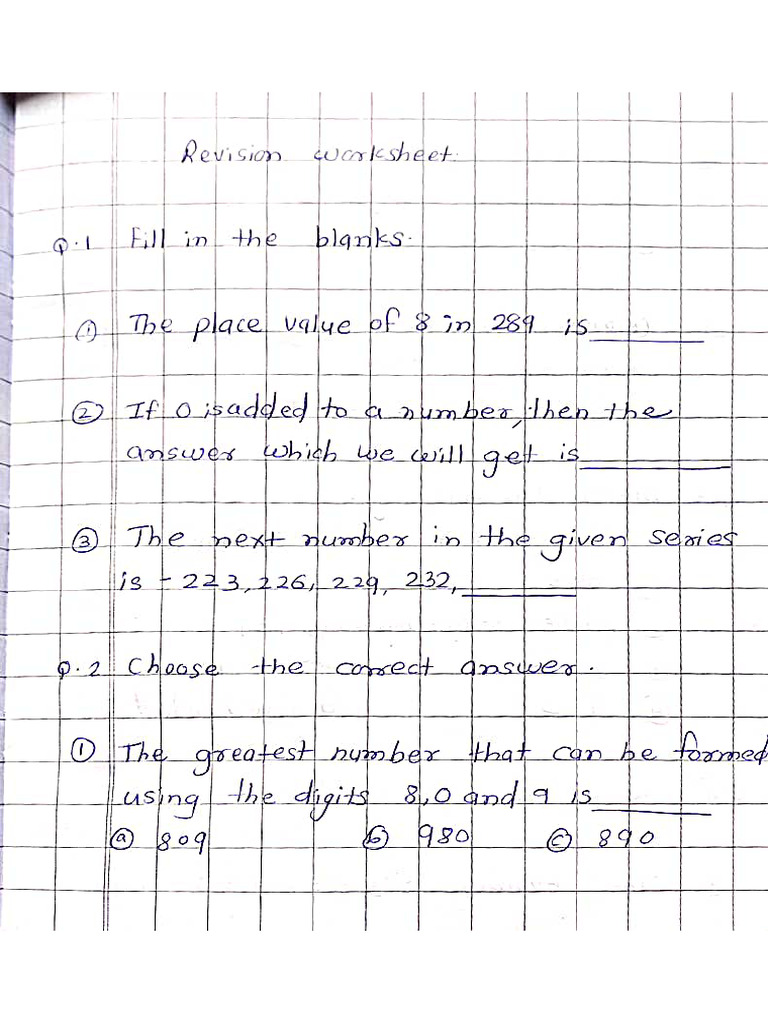 Revision worksheet.
Q.1 Fill in the blanks.
① The place value of 8 in 289 is________
② If 0 is added to a number, then the
answer which we will get is__________
③ The next number in the given series
is - 223, 226, 229, 232,________
Q.2 Choose the correct answer.
① The greatest number that can be formed
using the digits 8,0 and 9 is________
ⓐ 809 ⓑ 980 ⓒ 890